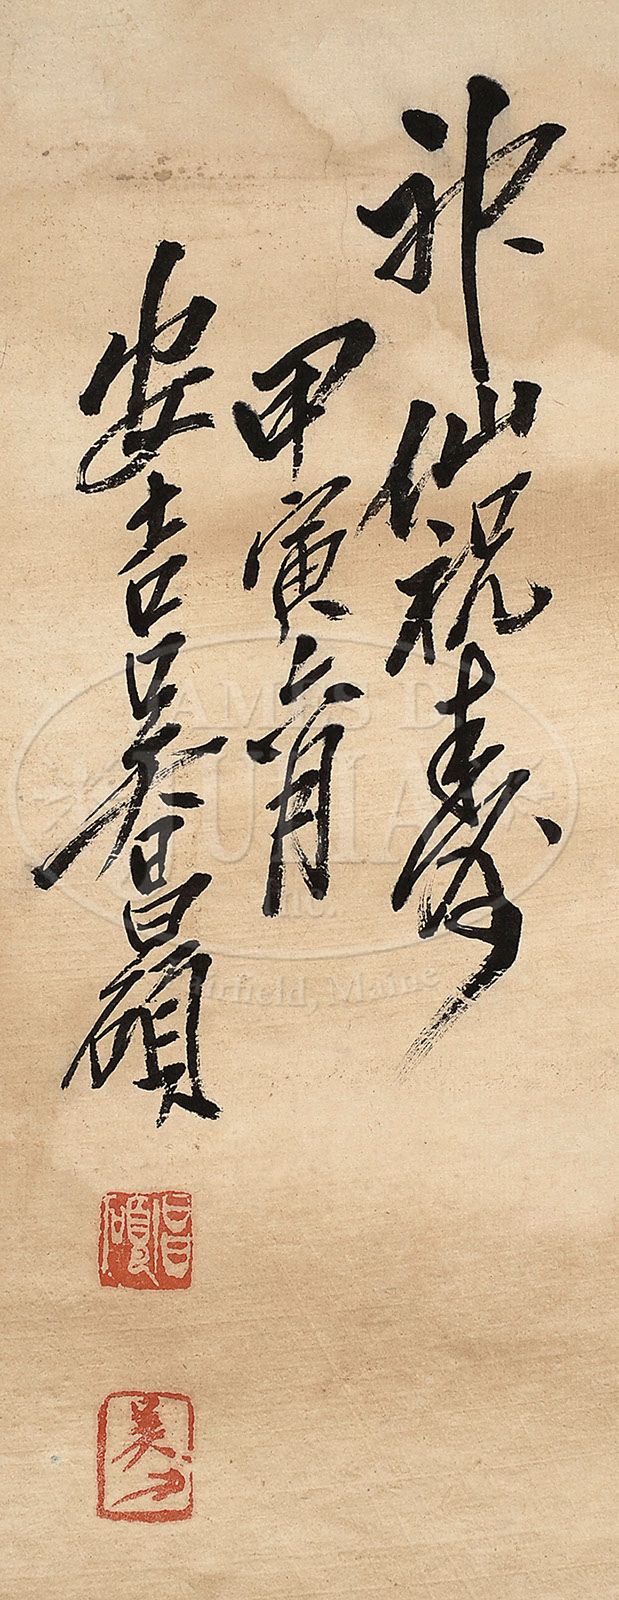 神仙祝壽
甲寅六月
安吉吳昌碩
昌碩
JAMES D.
JULIA
INC.
Fairfield, Maine